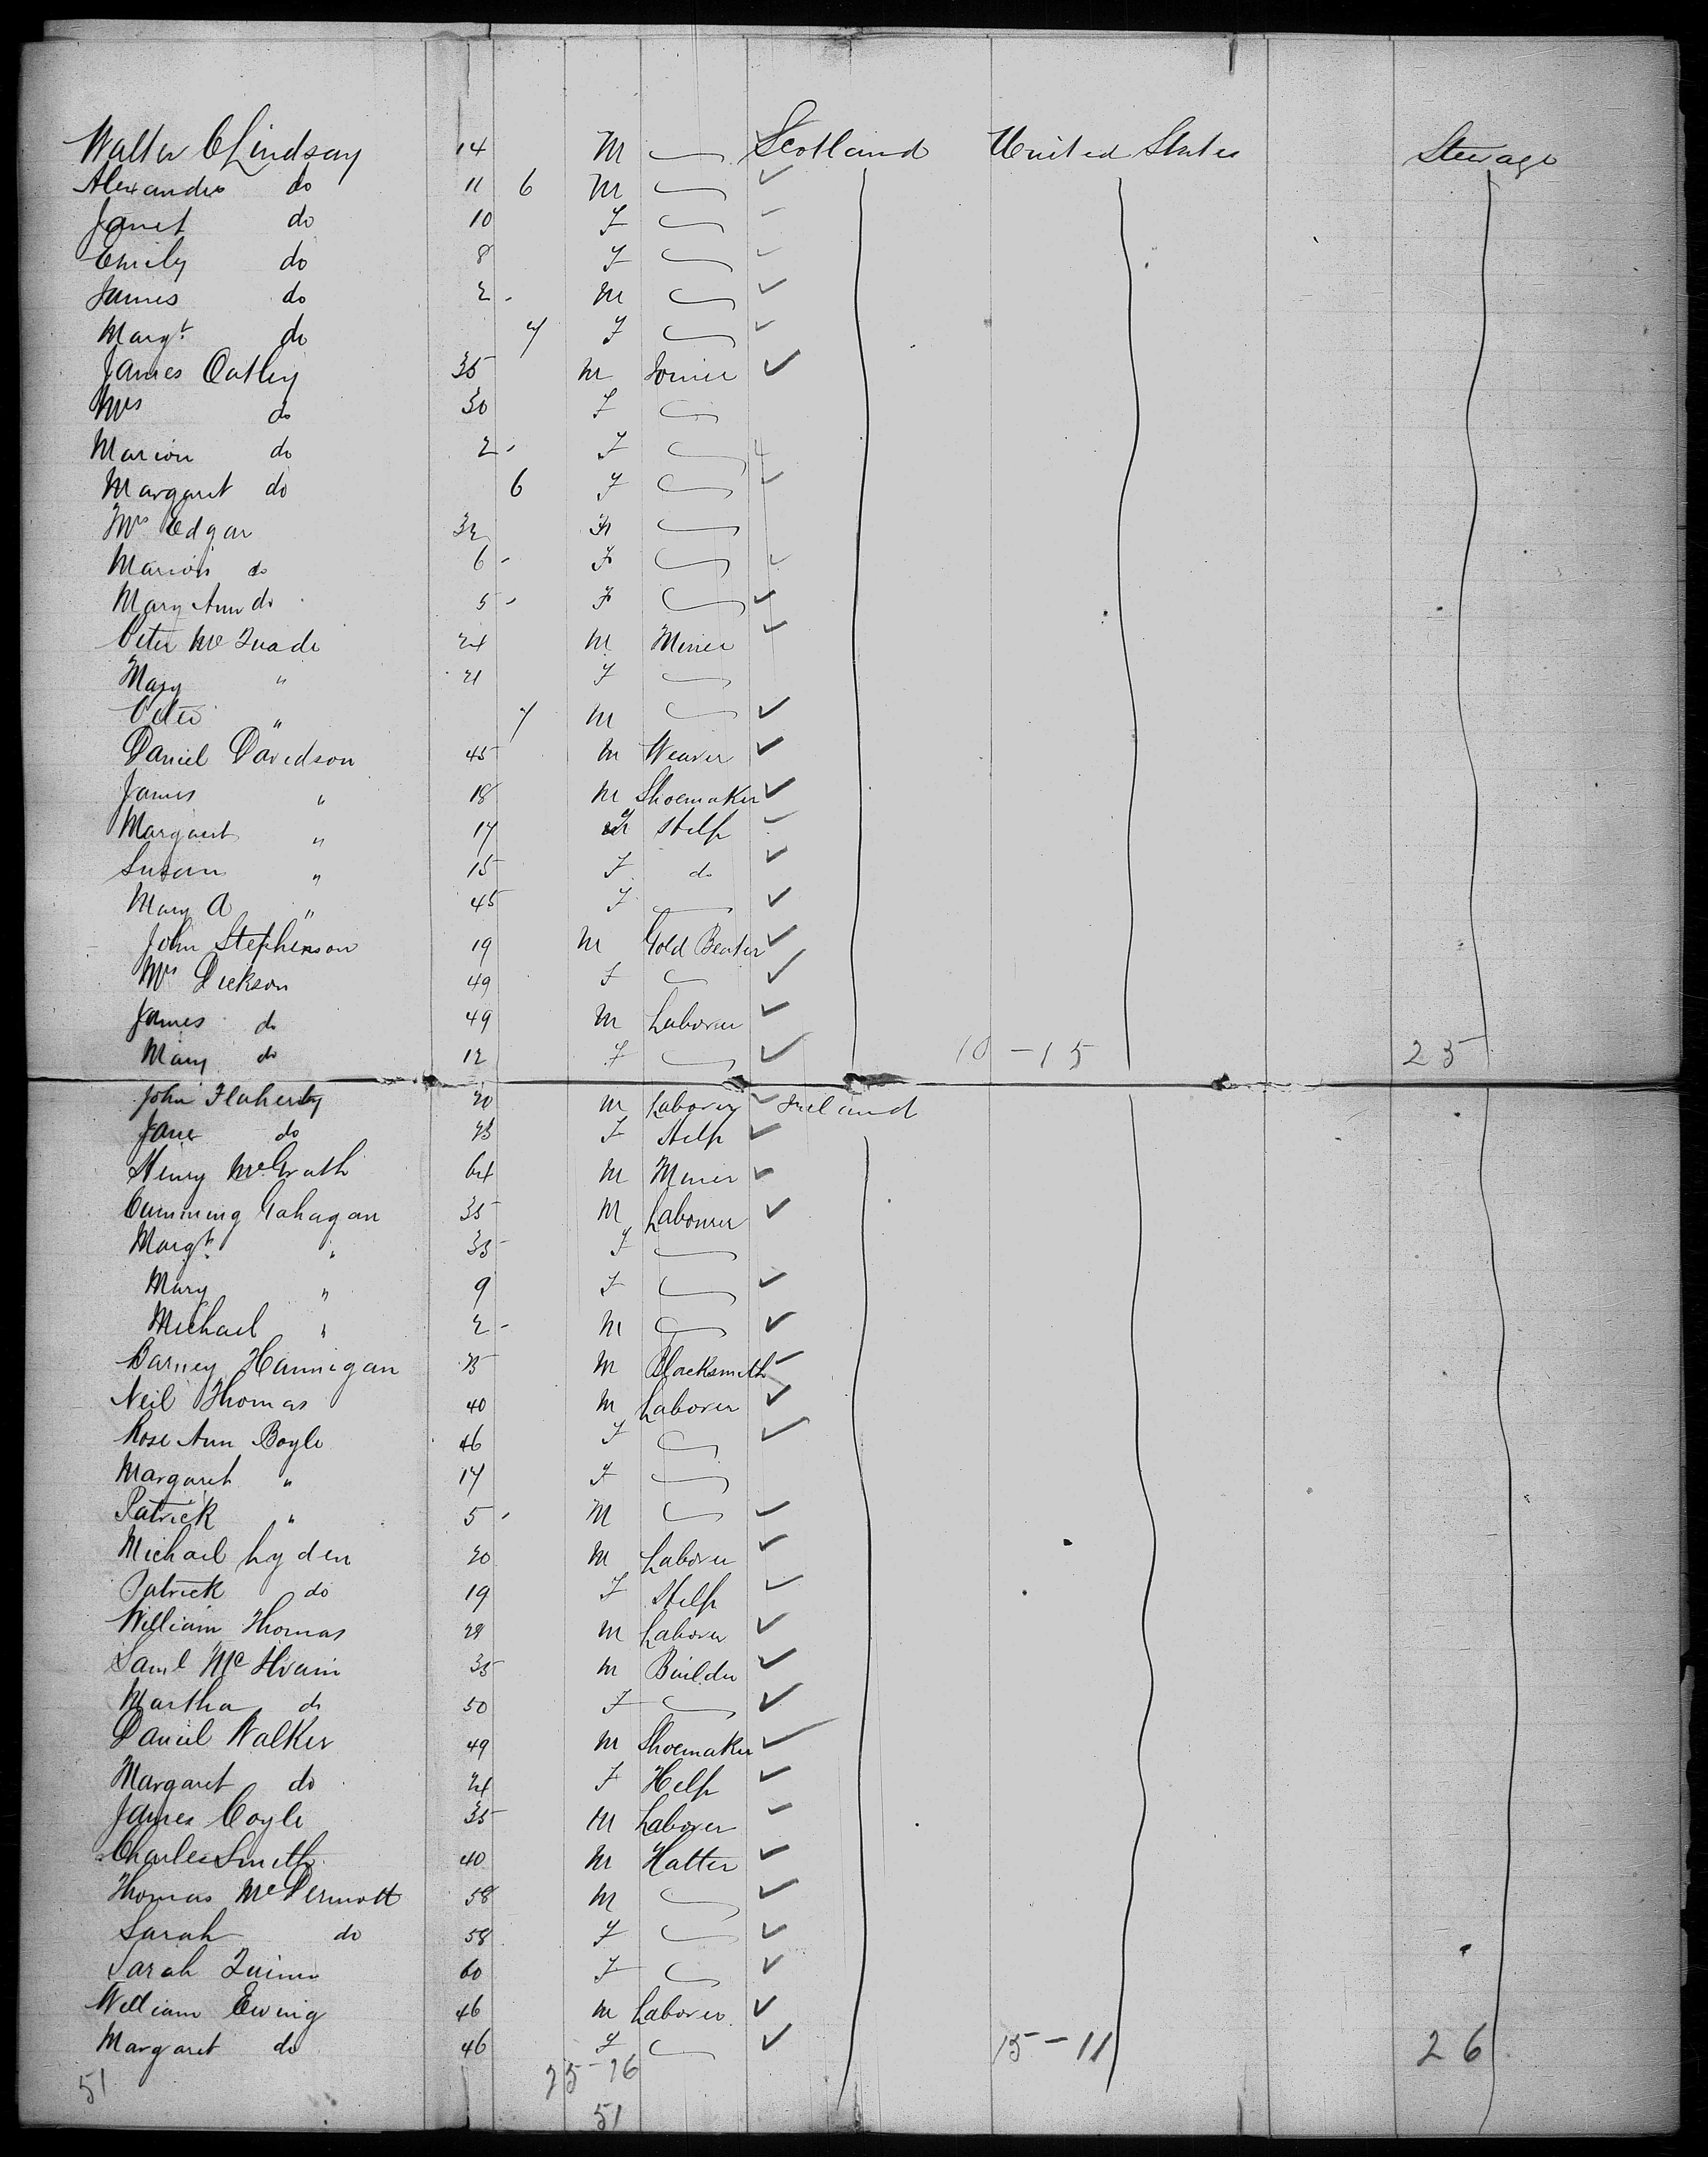 Walter C Lindsay 14 M Scotland United States Steerage
Alexander do 11 6 M
Janet do 10 F
Emily do 8 F
James do 2 M
Margt. do 7 F
James Oatley 35 M Joiner
Mrs do 30 F
Marion do 2 F
Margaret do 6 F
Mrs Edgar 32 F
Marion do 6 F
Mary Ann do 5 F
Peter McQuade 24 M Miner
Mary " 21 F
Peter " 7 M
Daniel Davidson 45 M Weaver
James " 18 M Shoemaker
Margaret " 17 F Help
Susan " 15 F do
Mary A " 45 F
John Stephenson 19 M Gold Beater
Mrs Dickson 49 F
James do 49 M Laborer
Mary do 12 F 10-15 25
John Flaherty 20 M Laborer Ireland
Jane do F Help
Henry McGrath 64 M Miner
Cumming Gahagan 35 M Labourer
Margt. " 35 F
Mary " 9 F
Michael " 2 M
Barney Hannigan M Blacksmith
Neil Thomas 40 M Laborer
Rose Ann Boyle 46 F
Margaret " 17 F
Patrick " 5 M
Michael Lyden 20 M Laborer
Patrick do 19 F Help
William Thomas M Laborer
Saml Mc 35 M Builder
Martha do 50 F
Daniel Walker 49 M Shoemaker
Margaret do 24 F Help
James Coyle 35 M Laborer
Charles Smith 40 M Hatter
Thomas McDermott 58 M
Sarah do 58 F
Sarah Quinn 60 F
William Ewing 46 M Laborer
Margaret do 46 F 15-11 26
51 25-26
51